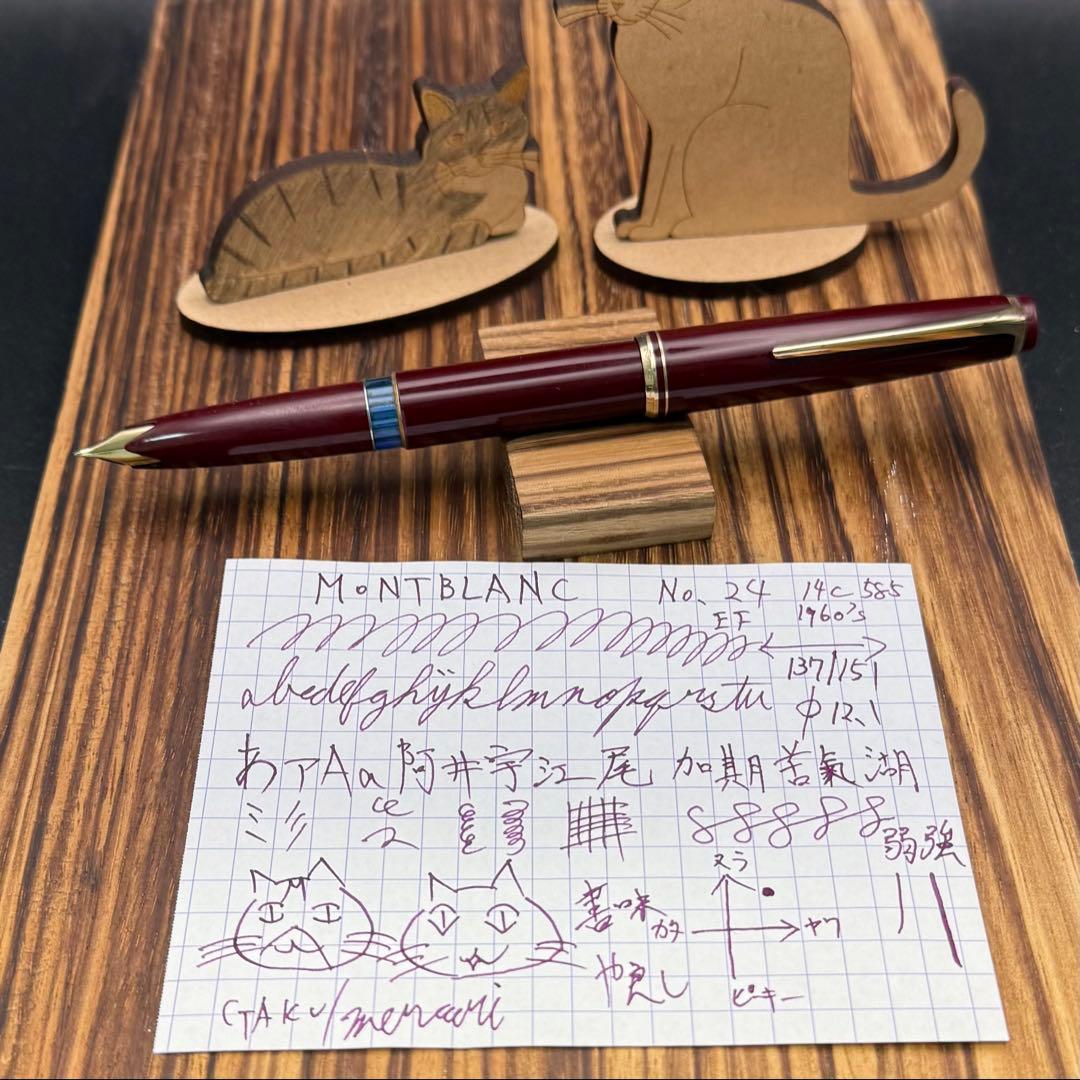 MONTBLANC No. 24 14C 585
EF 1960's
137/151
φ 12.1
abcdefghijklmnopqrstu
あァAa阿井宇江尾 加期苦氣湖
弱 強
ヌラ
カタ ヤワ
ピーキー
GAKU/mercari